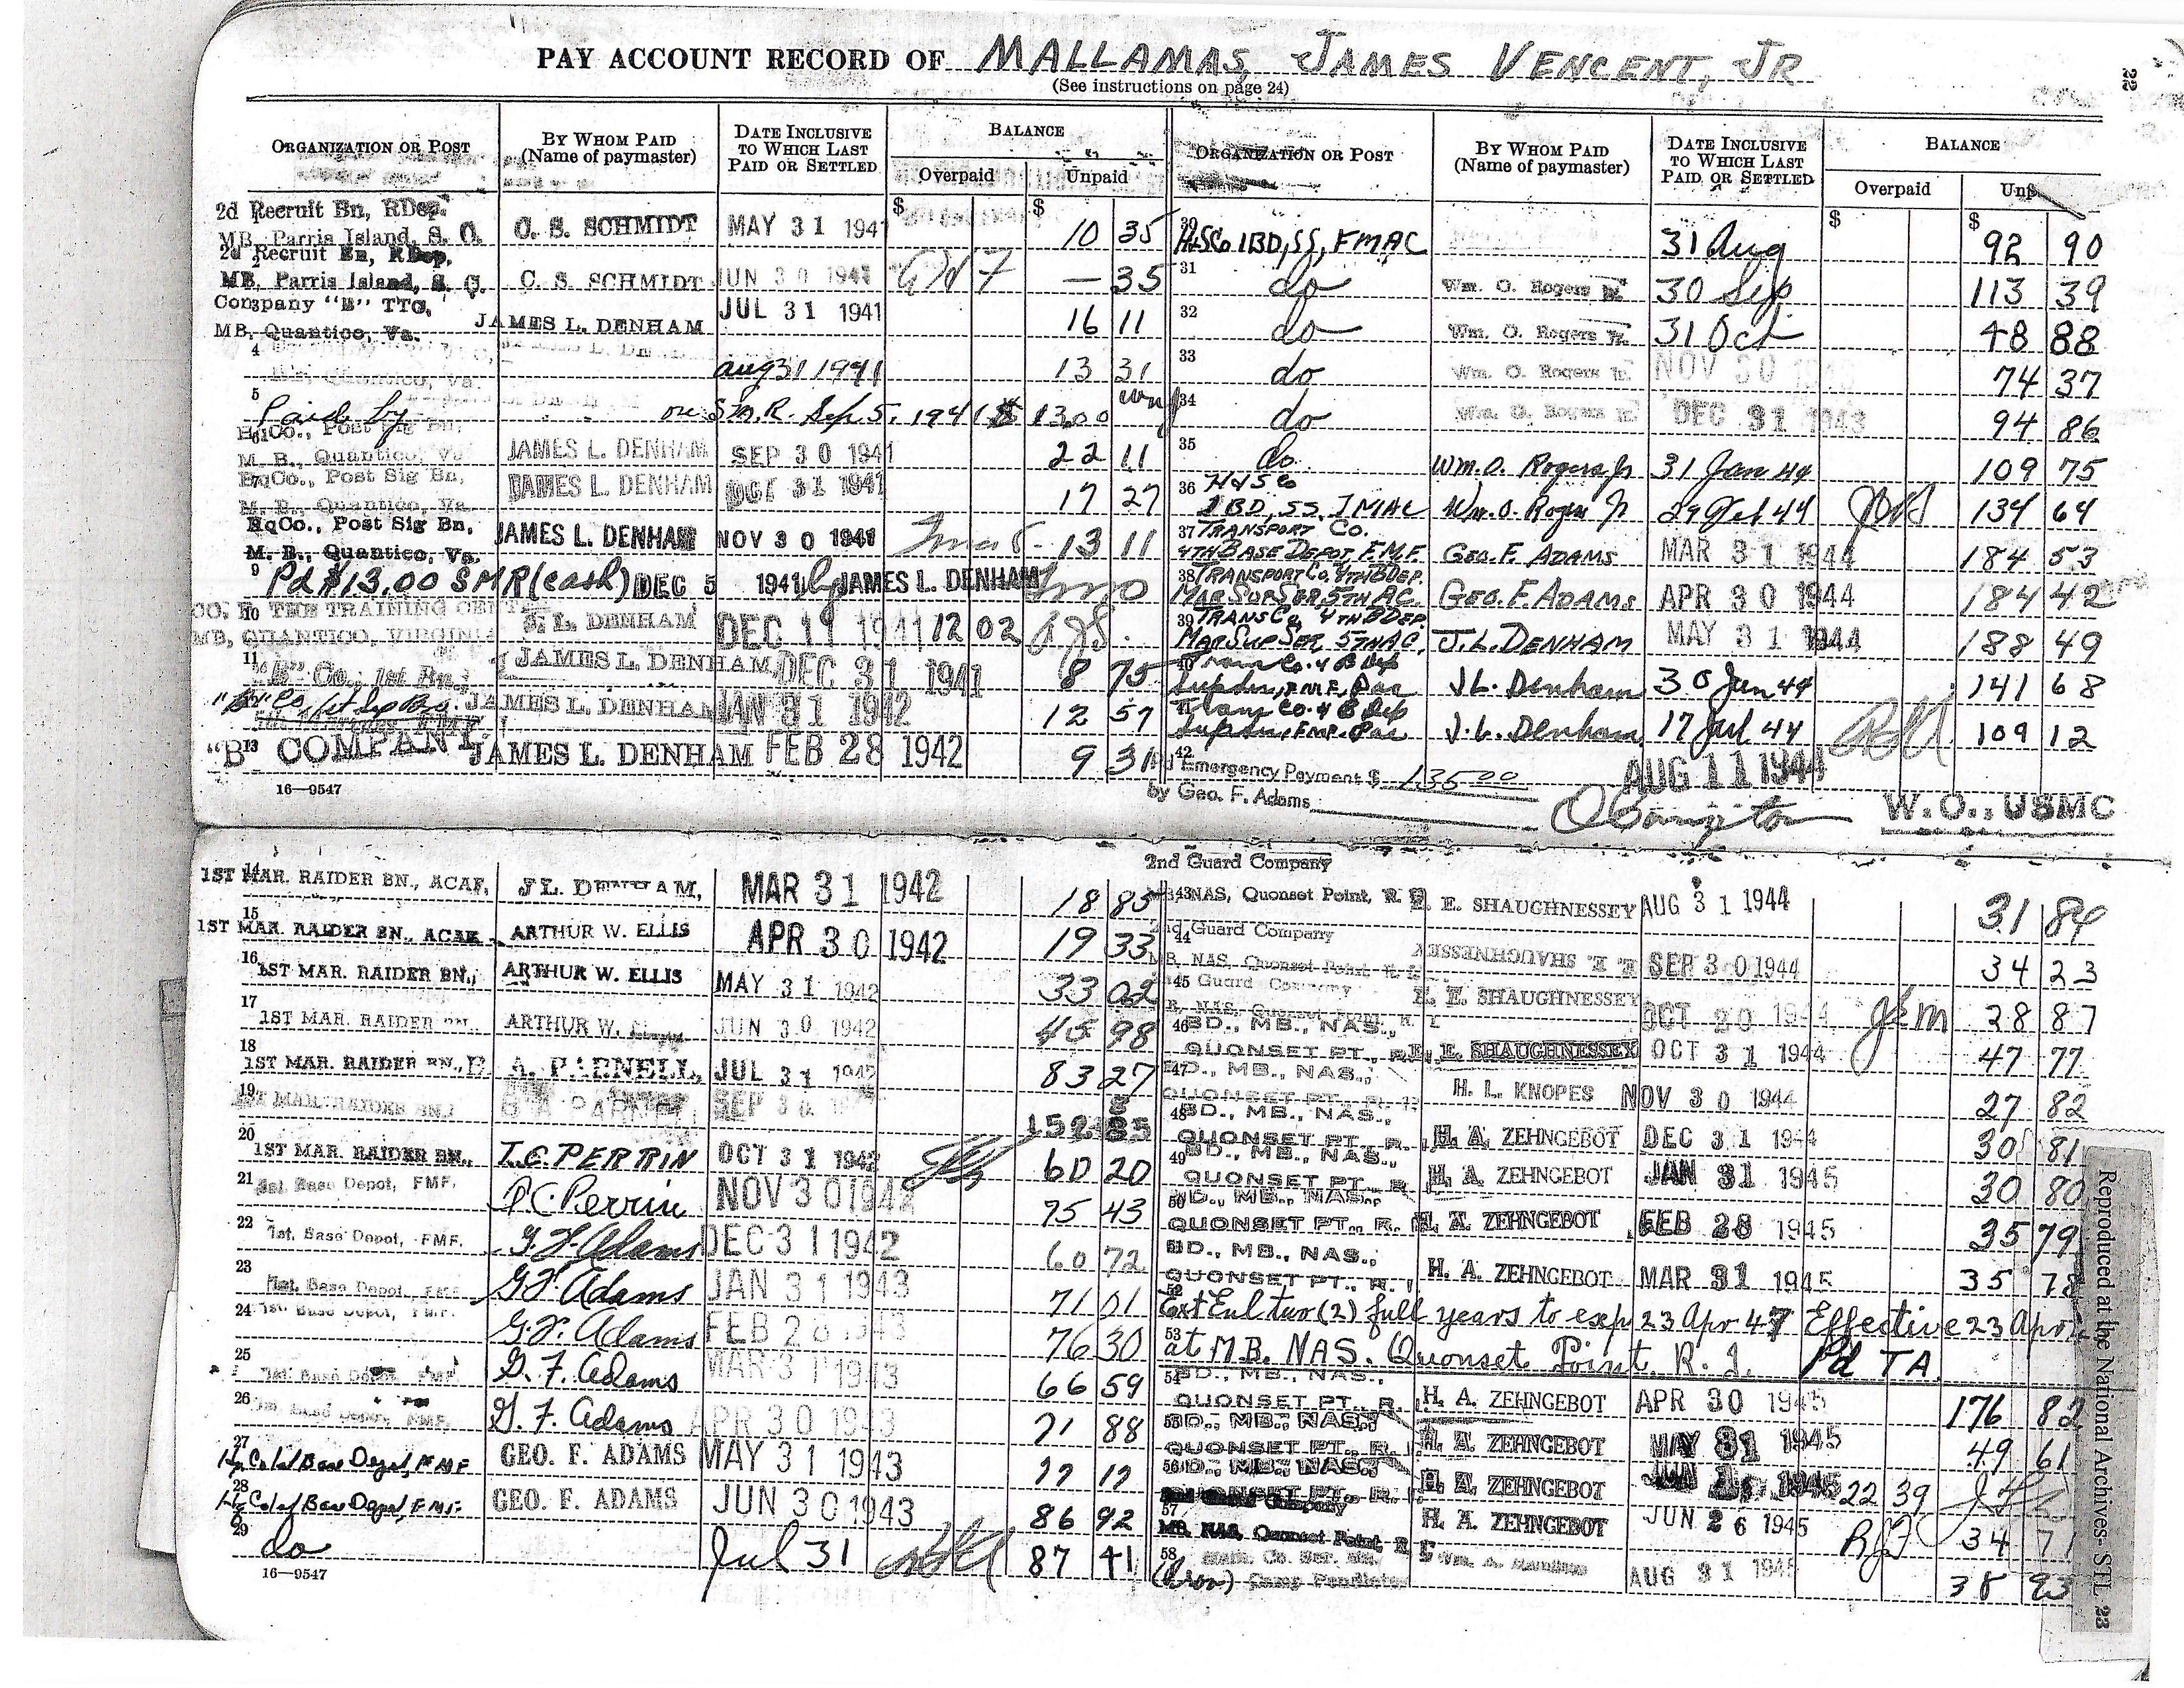 PAY ACCOUNT RECORD OF MALLAMAS, JAMES VENCENT, JR
(See instructions on page 24)
22
ORGANIZATION OR POST BY WHOM PAID (Name of paymaster) DATE INCLUSIVE TO WHICH LAST PAID OR SETTLED BALANCE Overpaid Unpaid
2d Recruit Bn, RDep.
MB, Parris Island, S. C. C. S. SCHMIDT MAY 31 1941 $ $ 10 35
2d Recruit Bn, RDep.
MB, Parris Island, S. C. C. S. SCHMIDT JUN 30 1941 — 35
3 Company "E" TTC,
MB, Quantico, Va. JAMES L. DENHAM JUL 31 1941 16 11
4 Quantico, Va. Aug 31 1941 13 31
5 Paid by on S.M.R. Sep 5, 1941 $ 13 00
HqCo., Post Sig Bn,
M. B., Quantico, Va JAMES L. DENHAM SEP 30 1941 22 11
HqCo., Post Sig Bn,
M. B., Quantico, Va JAMES L. DENHAM OCT 31 1941 17 27
HqCo., Post Sig Bn,
M. B., Quantico, Va. JAMES L. DENHAM NOV 30 1941 13 11
9 Pd $13.00 SMR (cash) DEC 5 1941 by JAMES L. DENHAM
10 THE TRAINING CENT
MB, QUANTICO, VIRGINIA J. L. DENHAM DEC 11 1941 12 02
11 "B" Co., 1st Bn., JAMES L. DENHAM DEC 31 1941 8 75
JAMES L. DENHAM JAN 31 1942 12 57
13 "B" COMPANY JAMES L. DENHAM FEB 28 1942 9 31
16—9547
14 1ST MAR. RAIDER BN., ACAF, J L. DENHAM, MAR 31 1942 18 85
15 1ST MAR. RAIDER BN., ACAF ARTHUR W. ELLIS APR 30 1942 19 33
16 1ST MAR. RAIDER BN., ARTHUR W. ELLIS MAY 31 1942 33 02
17 1ST MAR. RAIDER BN., ARTHUR W. JUN 30 1942 45 98
18 1ST MAR. RAIDER BN., B. A. PARNELL, JUL 31 1942 83 27
19 1ST MAR. RAIDER BN., B A PARNELL SEP 30 152 85
20 1ST MAR. RAIDER BN., T.C. PERRIN OCT 31 1942 60 20
21 1st. Base Depot, FMF. Perrin NOV 30 1942 75 43
22 1st. Base Depot, FMF. G. F. Adams DEC 31 1942 60 72
23 1st. Base Depot, FMF. G F Adams JAN 31 1943 71 01
24 1st. Base Depot, FMF. G. F. Adams FEB 28 1943 76 30
25 1st. Base Depot, FMF. G. F. Adams MAR 31 1943 66 59
26 1st. Base Depot, FMF. G. F. Adams APR 30 1943 71 88
27 Base Depot, FMF GEO. F. ADAMS MAY 31 1943 77 17
28 Base Depot, FMF GEO. F. ADAMS JUN 30 1943 86 92
29 do Jul 31 87 41
16—9547
ORGANIZATION OR POST BY WHOM PAID (Name of paymaster) DATE INCLUSIVE TO WHICH LAST PAID OR SETTLED BALANCE Overpaid
30 H&SCo 1BD, SS, FMAC 31 Aug $ $ 92 90
31 do Wm. O. Rogers Jr. 30 Sep 113 39
32 do Wm. O. Rogers Jr. 31 Oct 48 88
33 do Wm. O. Rogers Jr. NOV 30 74 37
34 do Wm. O. Rogers DEC 31 1943 94 86
35 do Wm. O. Rogers Jr 31 Jan 44 109 75
36 H&S Co
1BD, SS, IMAC Wm. O. Rogers Jr 29 Feb 44 134 64
37 TRANSPORT CO.
4TH BASE DEPOT, F.M.F. GEO. F. ADAMS MAR 31 1944 184 53
38 TRANSPORT CO. 4TH BDEP.
MAR SUP SER 5TH AC. GEO. F. ADAMS APR 30 1944 184 42
39 TRANS CO, 4TH BDEP
MAR SUP SER, 5TH AC, J. L. DENHAM MAY 31 1944 188 49
40 Trans Co. 4 B Dep
SupSer, FMF, Pac J L. Denham 30 Jun 44 141 68
Trans Co. 4 B Dep
SupSer, FMF. Pac J. L. Denham 17 Jul 44 109 12
42 Emergency Payment $ 135 00 AUG 11 1944
by Geo. F. Adams W. O., USMC
2nd Guard Company
43 NAS, Quonset Point, R. E. E. SHAUGHNESSEY AUG 31 1944 31 84
44 2nd Guard Company
MB, NAS, Quonset Point, R. I. E. E. SHAUGHNESSEY SEP 30 1944 34 23
45 Guard Company
NAS, Quonset Point, R. I. E. E. SHAUGHNESSEY OCT 20 1944 28 87
46 BD., MB., NAS.,
QUONSET PT., R. E. E. SHAUGHNESSEY OCT 31 1944 47 77
47 BD., MB., NAS.,
QUONSET PT., R. I. H. L. KNOPES NOV 30 1944 27 82
48 BD., MB., NAS.,
QUONSET PT., R. H. A. ZEHNGEBOT DEC 31 1944 30 81
49 BD., MB., NAS.,
QUONSET PT., R H. A. ZEHNGEBOT JAN 31 1945 30 80
50 BD., MB., NAS.,
QUONSET PT., R. H. A. ZEHNGEBOT FEB 28 1945 35 79
BD., MB., NAS.,
QUONSET PT., R. I H. A. ZEHNGEBOT MAR 31 1945 35 78
52 Ext Enl two (2) full years to exp 23 Apr 47 Effective 23 Apr
53 at MB. NAS. Quonset Point, R. I. Pd TA.
54 BD., MB., NAS.,
QUONSET PT., R. H. A. ZEHNGEBOT APR 30 1945 176 82
55 BD., MB., NAS.,
QUONSET PT., R. I. H. A. ZEHNGEBOT MAY 31 1945 49 61
56 BD., MB., NAS.,
QUONSET PT., R. I. H. A. ZEHNGEBOT JUN 1945 22 39
57 Guard Company
MB, NAS, Quonset Point, R H. A. ZEHNGEBOT JUN 26 1945 34 71
58 Camp Pendleton AUG 31 1945 38 93
Reproduced at the National Archives- STL
23